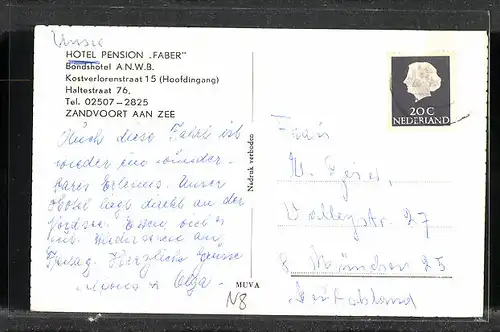 Unser
HOTEL PENSION „FABER"
Bondshotel A.N.W.B.
Kostverlorenstraat 15 (Hoofdingang)
Haltestraat 76,
Tel. 02507–2825
ZANDVOORT AAN ZEE
Auch diese Fahrt ist
wieder ein wunder-
bares Erlebnis. Unser
Hotel liegt direkt an der
Nordsee. Essen
gut. Wiedersehn am
Freitag. Herzliche Grüsse
Olga
Nadruk verboden
MUVA
N8
20 C
NEDERLAND
Frau
27
8 München 25
Deutschland